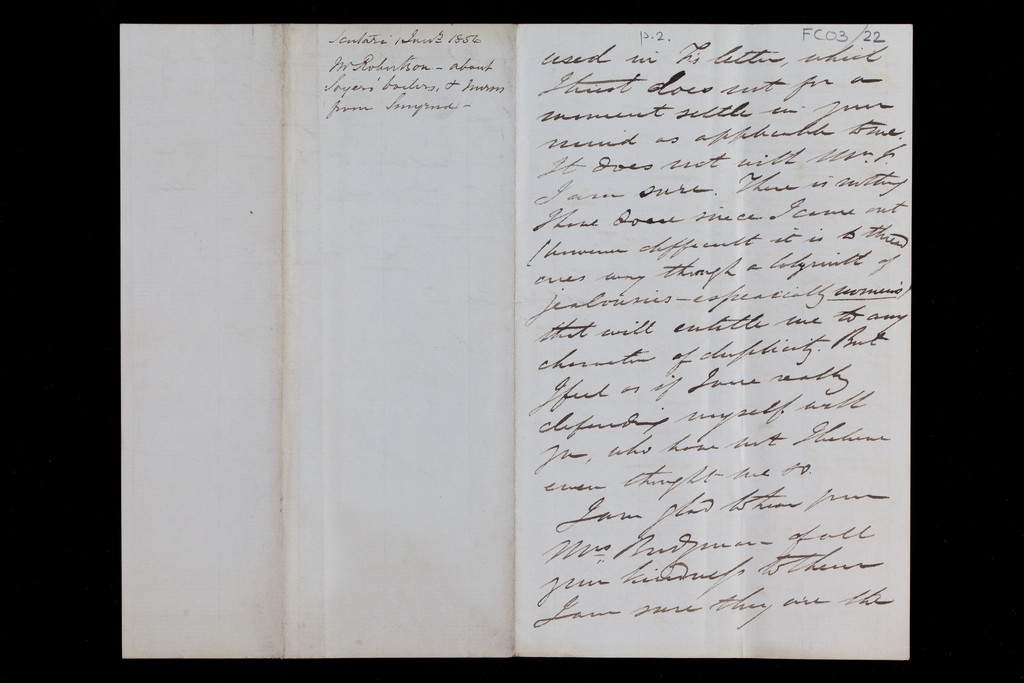 Scutari 1 Jany. 1856
Mr Robertson - about
Soyers' boilers, & Nurses
from Smyrna -
p.2.
FC03/22
used in his letter, which
I trust does not for a
moment settle in your
mind as applicable to me.
It does not with Mrs.
I am sure. There is nothing
I have done since I came out
(however difficult it is to thread
ones way through a labyrinth of
jealousies - especially women's)
that will entitle me to any
character of duplicity. But
I feel as if I were really
defending myself with
you, who have not I believe
ever thought me so.
I am glad to hear from
Mrs Bridgman - of all
your kindness to them
I am sure they are the